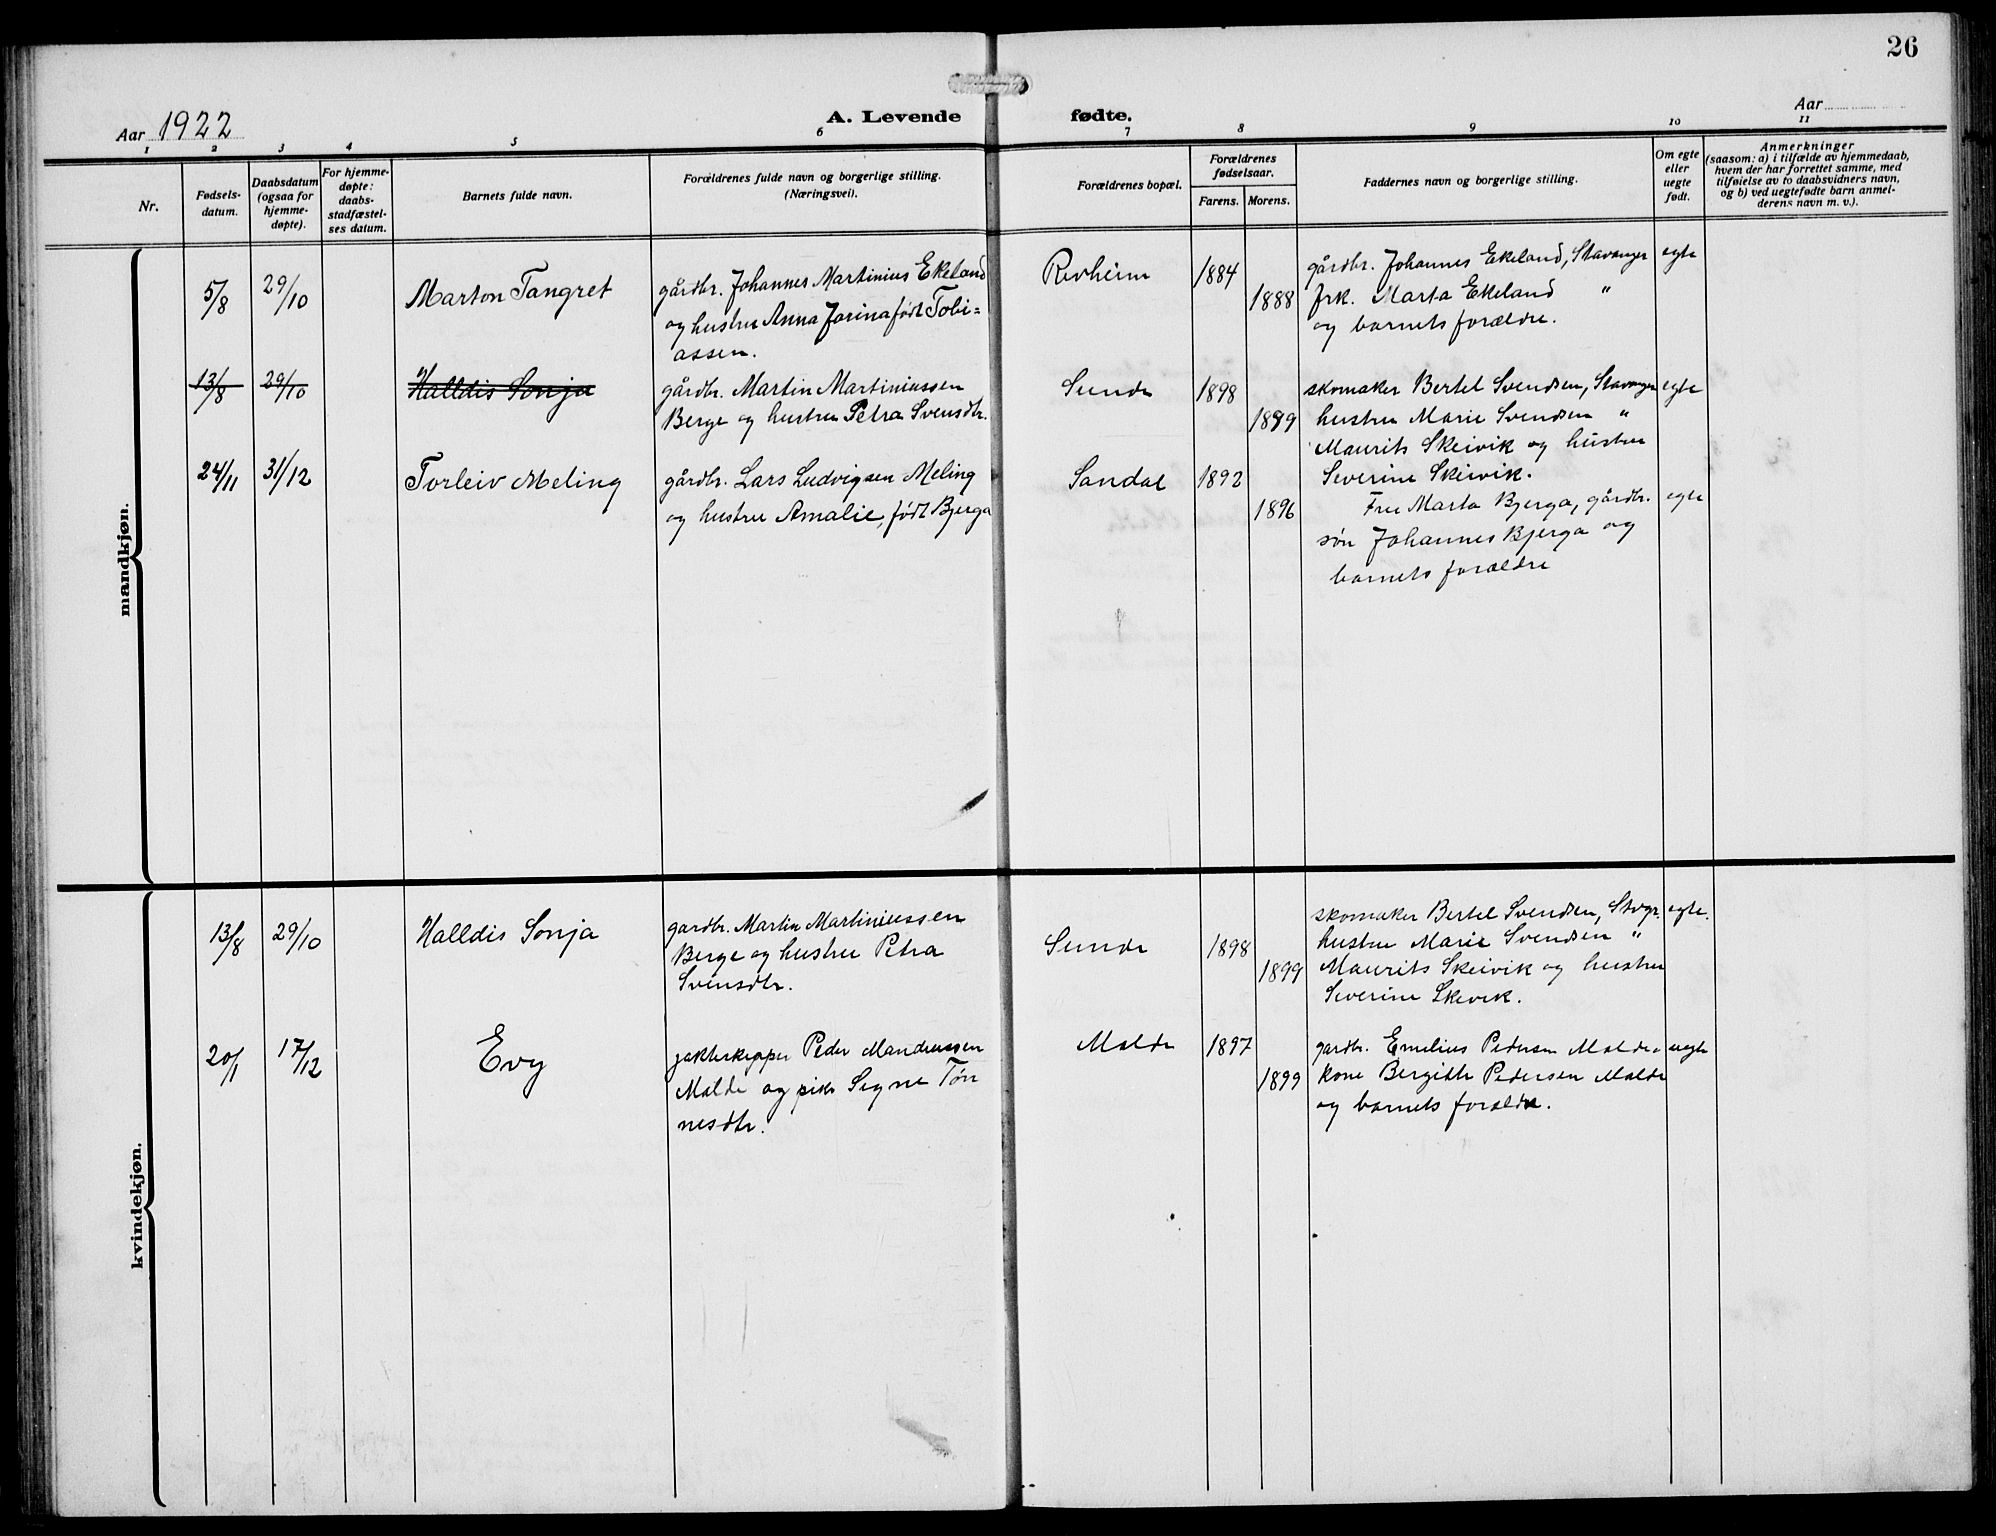 26
Aar 1922
A. Levende fødte.
Aar
1 2 3 4 5 6 7 8 9 10 11
Nr.
Fødsels-
datum.
Daabsdatum
(ogsaa for
hjemme-
døpte).
For hjemme-
døpte:
daabs-
stadfæstel-
ses datum.
Barnets fulde navn.
Forældrenes fulde navn og borgerlige stilling.
(Næringsvei).
Forældrenes bopæl.
Forældrenes
fødselsaar.
Farens. Morens.
Faddernes navn og borgerlige stilling.
Om egte
eller
uegte
født.
Anmerkninger
(saasom: a) i tilfælde av hjemmedaab,
hvem der har forrettet samme, med
tilføielse av to daabsvidners navn,
og b) ved uegtefødte barn anmel-
derens navn m. v.).
mandkjøn.
5/8 29/10
Marton Tangret
gårdbr. Johannes Martinius Ekeland
og hustru Anna Jorina født Tobi=
assen.
Revheim
1884
1888
gårdbr. Johannes Ekeland, Stavanger
frk. Marta Ekeland "
og barnets forældre.
egte
13/8 29/10
Halldis Sonja
gårdbr. Martin Martiniussen
Berge og hustru Petra Svensdtr.
Sunde
1898
1899
skomaker Bertel Svendsen, Stavanger
hustru Marie Svendsen "
Maurits Skeivik og hustru
Severine Skeivik.
egte
24/11 31/12
Torleiv Meling
gårdbr. Lars Ludvigsen Meling
og hustru Amalie, født Bjerga
Sandal
1892
1896
Fru Marta Bjerga, gårdbr.
søn Johannes Bjerga og
barnets forældre
egte
kvindekjøn.
13/8 29/10
Halldis Sonja
gardbr. Martin Martiniussen
Berge og hustru Petra
Svensdtr.
Sunde
1898
1899
skomaker Bertel Svendsen, Stvgr.
hustru Marie Svendsen "
Maurits Skeivik og hustru
Severine Skeivik.
egte.
20/1 17/12
Evy
jakteskipper Peder Mandrussen
Malde og pike Signe Tøn
nesdtr.
Malde
1897
1899
gardbr. Emilius Pedersen Malde
kone Bergitte Pedersen Malde
og barnets forældre.
uegte